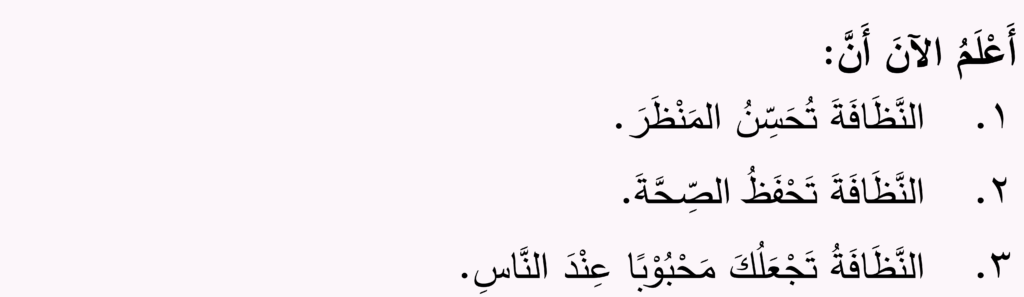 أَعْلَمُ الآنَ أَنَّ:
١. النَّظَافَةَ تُحَسِّنُ المَنْظَرَ.
٢. النَّظَافَةَ تَحْفَظُ الصِّحَّةَ.
٣. النَّظَافَةُ تَجْعَلُكَ مَحْبُوْبًا عِنْدَ النَّاسِ.